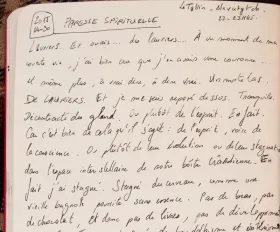 2015
PARESSE SPIRITUELLE
Lauriers. Et ouais... des lauriers. À un moment de ma
courte vie, j'ai bien cru que j'en avais une couronne...
et même plus, à vrai dire, à dire vrai. Un matelas.
DE LAURIERS. Et je me suis reposé dessus. Tranquille
Décontracté du gland. Ou plutôt de l'esprit. En fait.
Car c'est bien de cela qu'il s'agit: de l'esprit, voire de
la conscience. Ou plutôt de leur évolution ou de leur stagnation
dans l'espace interstellaire de notre boîte crânienne. En
fait j'ai stagné. Stagné du cerveau, comme une
vieille bagnole pourrie sans essence. Pas de bras, pas
de chocolat. Et donc pas de livres, pas de développement